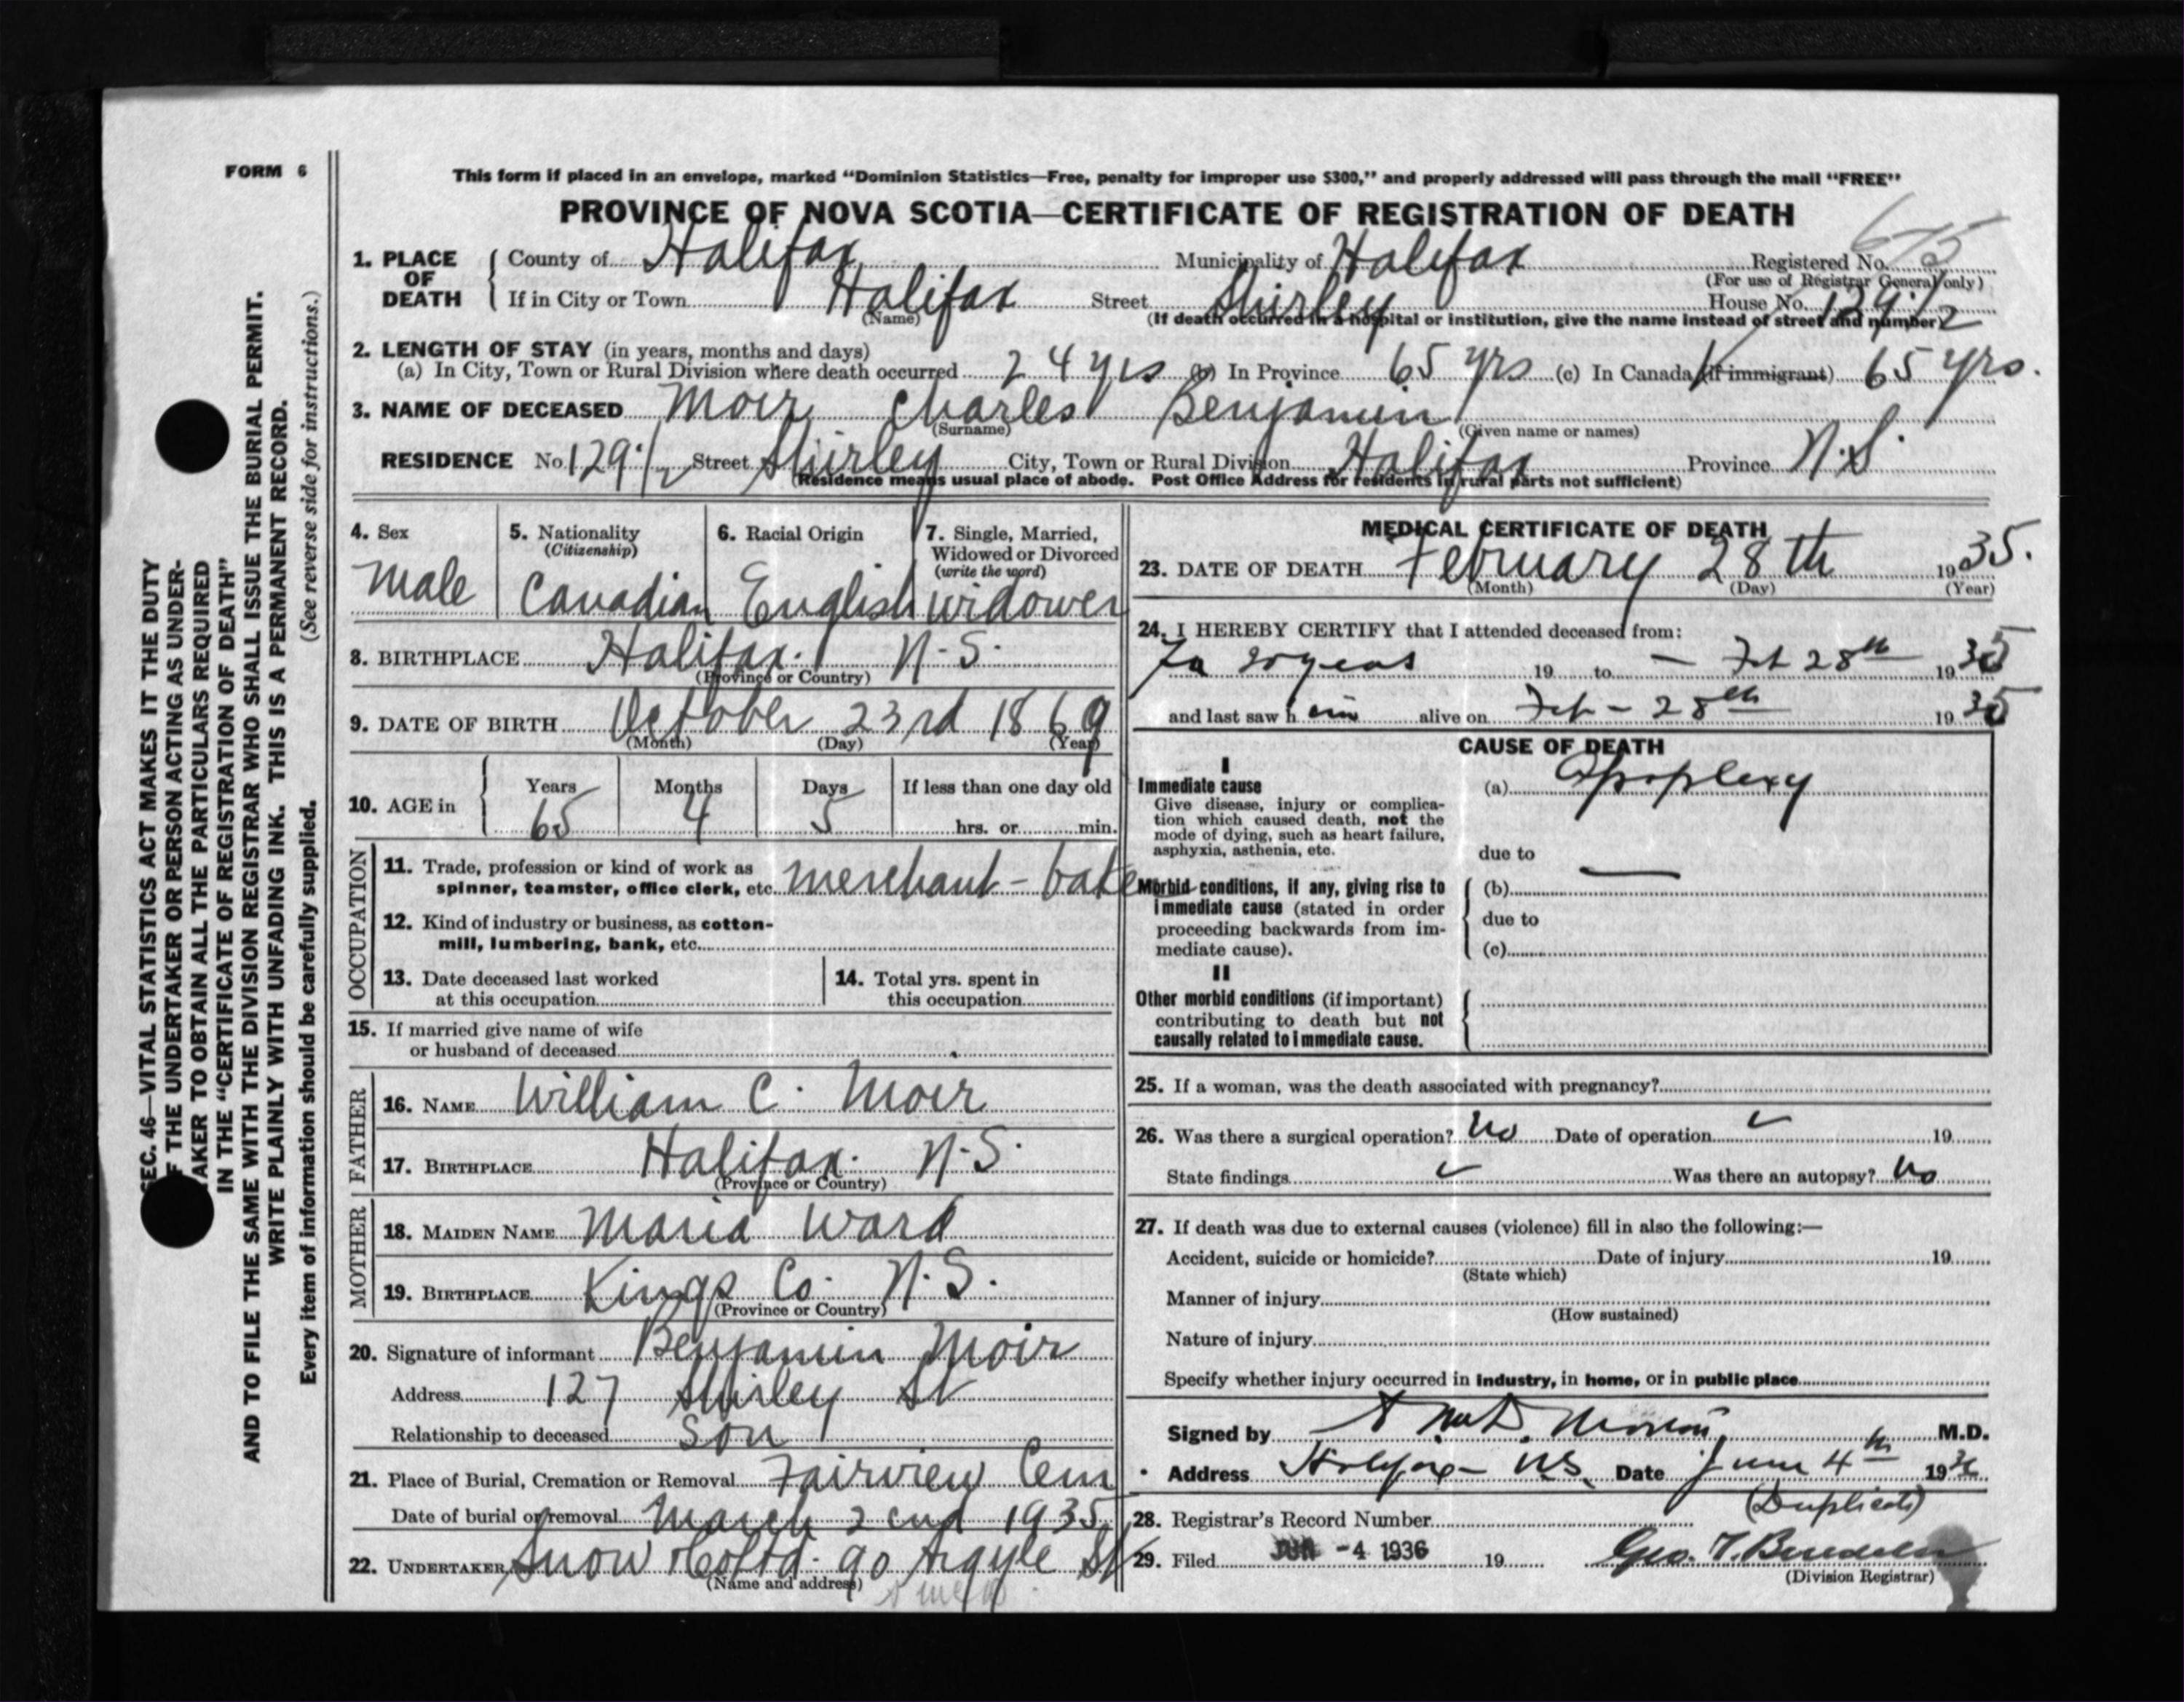 FORM 6
This form if placed in an envelope, marked “Dominion Statistics—Free, penalty for improper use $300,” and properly addressed will pass through the mail “FREE”
PROVINCE OF NOVA SCOTIA—CERTIFICATE OF REGISTRATION OF DEATH
1. PLACE OF DEATH { County of Halifax Municipality of Halifax Registered No. 675
(For use of Registrar General only)
If in City or Town Halifax Street Shirley House No. 129 1/2
(Name) (If death occurred in a hospital or institution, give the name instead of street and number)
2. LENGTH OF STAY (in years, months and days)
(a) In City, Town or Rural Division where death occurred 24 yrs (b) In Province 65 yrs (c) In Canada (if immigrant) 65 yrs.
3. NAME OF DECEASED Moir Charles Benjamin
(Surname) (Given name or names)
RESIDENCE No. 129 1/2 Street Shirley City, Town or Rural Division Halifax Province N.S.
(Residence means usual place of abode. Post Office Address for residents in rural parts not sufficient)
4. Sex Male
5. Nationality (Citizenship) Canadian
6. Racial Origin English
7. Single, Married, Widowed or Divorced (write the word) widower
8. BIRTHPLACE Halifax. N.S.
(Province or Country)
9. DATE OF BIRTH October 23rd 1869
(Month) (Day) (Year)
10. AGE in { Years 65 Months 4 Days 5 If less than one day old
hrs. or min.
OCCUPATION
11. Trade, profession or kind of work as
spinner, teamster, office clerk, etc. merchant - bake
12. Kind of industry or business, as cotton-
mill, lumbering, bank, etc.
13. Date deceased last worked
at this occupation
14. Total yrs. spent in
this occupation
15. If married give name of wife
or husband of deceased
FATHER
16. NAME William C. Moir
17. BIRTHPLACE Halifax. N.S.
(Province or Country)
MOTHER
18. MAIDEN NAME Maria Ward
19. BIRTHPLACE Kings Co. N.S.
(Province or Country)
20. Signature of informant Benjamin Moir
Address 127 Shirley St
Relationship to deceased Son
21. Place of Burial, Cremation or Removal Fairview Cem
Date of burial or removal March 2cnd 1935
22. UNDERTAKER Snow & Co Ltd. 90 Argyle St
(Name and address)
MEDICAL CERTIFICATE OF DEATH
23. DATE OF DEATH February 28th 1935.
(Month) (Day) (Year)
24. I HEREBY CERTIFY that I attended deceased from:
For 20 years 19 to — Feb 28th 1935
and last saw him alive on Feb - 28th 1935
CAUSE OF DEATH
I
Immediate cause
Give disease, injury or complica-
tion which caused death, not the
mode of dying, such as heart failure,
asphyxia, asthenia, etc.
(a) Apoplexy
due to
Morbid conditions, if any, giving rise to
immediate cause (stated in order
proceeding backwards from im-
mediate cause).
(b) —
due to
(c)
II
Other morbid conditions (if important)
contributing to death but not
causally related to immediate cause.
25. If a woman, was the death associated with pregnancy?
26. Was there a surgical operation? No Date of operation 19
State findings Was there an autopsy? No
27. If death was due to external causes (violence) fill in also the following:—
Accident, suicide or homicide? Date of injury 19
(State which)
Manner of injury
(How sustained)
Nature of injury
Specify whether injury occurred in industry, in home, or in public place
Signed by M.D.
Address Halifax - N.S. Date June 4th 1936
(Duplicate)
28. Registrar's Record Number
29. Filed JUN -4 1936 19 Geo. T.
(Division Registrar)
SEC. 46—VITAL STATISTICS ACT MAKES IT THE DUTY
F THE UNDERTAKER OR PERSON ACTING AS UNDER-
TAKER TO OBTAIN ALL THE PARTICULARS REQUIRED
IN THE “CERTIFICATE OF REGISTRATION OF DEATH”
AND TO FILE THE SAME WITH THE DIVISION REGISTRAR WHO SHALL ISSUE THE BURIAL PERMIT.
WRITE PLAINLY WITH UNFADING INK. THIS IS A PERMANENT RECORD.
Every item of information should be carefully supplied. (See reverse side for instructions.)